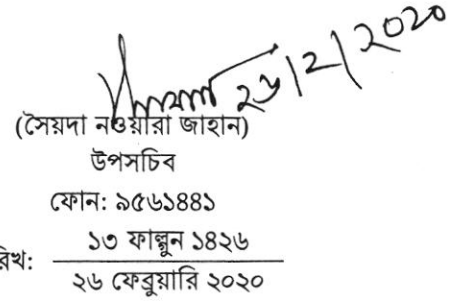 ২৬/২/২০২০
(সৈয়দা নওয়ারা জাহান)
উপসচিব
ফোন: ৯৫৬১৪৪১
রিখ: ১৩ ফাল্গুন ১৪২৬
২৬ ফেব্রুয়ারি ২০২০